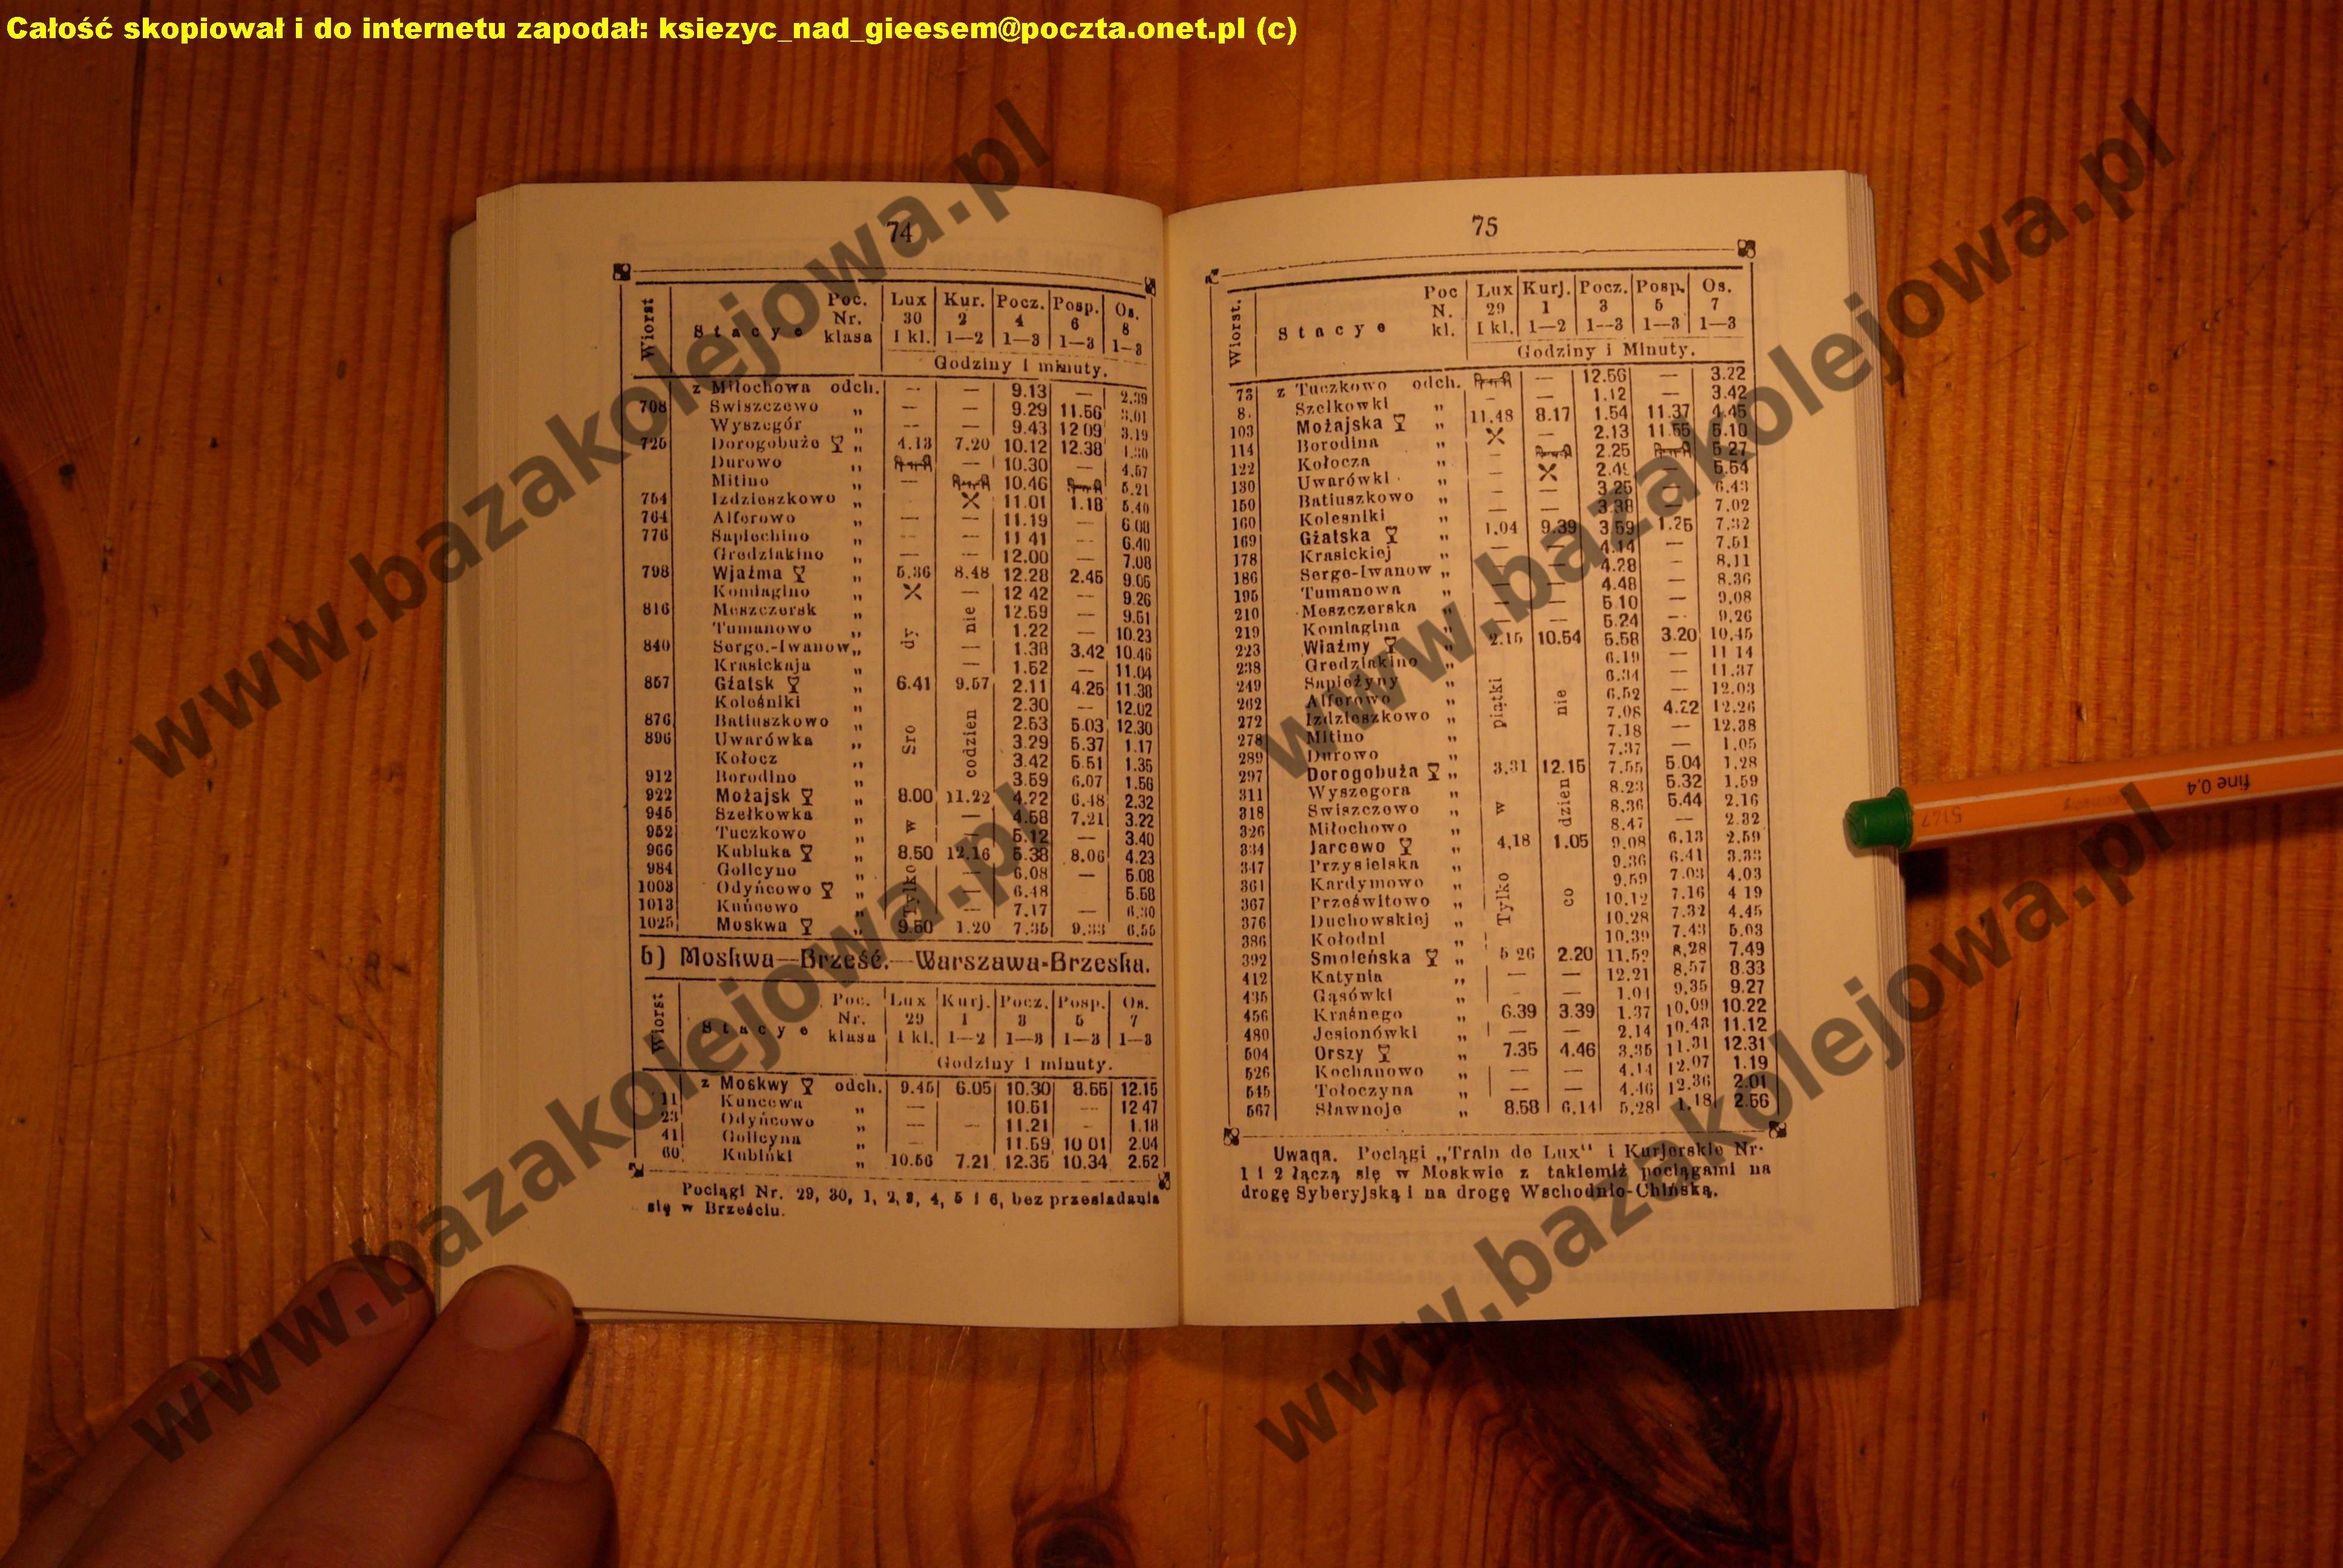 Całość skopiował i do internetu zapodał: ksiezyc_nad_gieesem@poczta.onet.pl (c)
74
Wiorst Stacye Poc. Nr. klasa Lux 30 I kl. Kur. 2 1—2 Pocz. 4 1—3 Posp. 6 1—3 Os. 8 1—3
Godziny i minuty.
z Miłochowa odch. — — 9.13 — 2.39
708 Swiszczewo „ — — 9.29 11.56 3.01
Wyszegór „ — — 9.43 12 09 3.19
725 Dorogobuże „ 4.13 7.20 10.12 12.38
Durowo „ — 10.30 — 4.57
Mitino „ — 10.46 5.21
754 Izdzieszkowo „ 11.01 1.18 5.40
764 Alferowo „ — — 11.19 — 6.08
776 Sapiechino „ — — 11 41 — 6.40
Gredziakino „ — — 12.00 — 7.08
798 Wjaźma „ 5.36 8.48 12.28 2.45 9.06
Komlagino „ — 12 42 — 9.26
816 Meszczersk „ 12.59 — 9.51
Tumanowo „ 1.22 — 10.23
840 Serge.-Iwanow „ — 1.38 3.42 10.46
Krasickaja „ — 1.52 — 11.04
857 Gżatsk „ 6.41 9.57 2.11 4.25 11.38
Koleśniki „ 2.30 — 12.02
876 Batiuszkowo „ 2.53 5.03 12.30
896 Uwarówka „ 3.29 5.37 1.17
Kołocz „ 3.42 5.51 1.35
912 Borodino „ 3.59 6.07 1.56
922 Możajsk „ 8.00 11.22 4.22 6.48 2.32
945 Szełkowka „ — 4.58 7.21 3.22
952 Tuczkowo „ — 5.12 — 3.40
966 Kubluka „ 8.50 12.16 5.38 8.06 4.23
984 Golicyno „ — 6.08 — 5.08
1003 Odyńcowo „ — 6.48 5.58
1013 Kuńcewo „ — 7.17 — 6.30
1025 Moskwa „ 9.50 1.20 7.35 9.33 6.55
Tylko w Środy
codziennie
b) Moskwa—Brześć.—Warszawa-Brzeska.
Wiorst Stacye Poc. Nr. klasa Lux 29 I kl. Kurj. 1 1—2 Pocz. 3 1—3 Posp. 5 1—3 Os. 7 1—3
Godziny i minuty.
z Moskwy odch. 9.45 6.05 10.30 8.55 12.15
11 Kuncewa „ — 10.51 — 12 47
23 Odyńcowo „ — — 11.21 - 1.18
41 Golicyna „ — 11.59 10 01 2.04
60 Kubińki „ 10.56 7.21 12.35 10.34 2.52
Pociągi Nr. 29, 30, 1, 2, 3, 4, 5 i 6, bez przesiadania
się w Brześciu.
75
Wiorst. Stacye Poc N. kl. Lux 29 I kl. Kurj. 1 1—2 Pocz. 3 1--3 Posp. 5 1—3 Os. 7 1—3
Godziny i Minuty.
73 z Tuczkowo odch. — 12.56 — 3.22
Szełkowki „ - — 1.12 — 3.42
103 Możajska „ 11.48 8.17 1.54 11.37 4.45
114 Borodina „ — 2.13 11.55 5.10
122 Kołocza „ - 2.25 5 27
130 Uwarówki „ — — 5.54
150 Batiuszkowo „ — — 3.25 6.43
160 Kolesniki „ — — 3.38 7.02
169 Gżatska „ 1.04 9.39 3 59 1.25 7.32
178 Krasickiej „ — — 4.14 — 7.51
186 Serge-Iwanow „ — — 4.28 - 8.11
195 Tumanowa „ — — 4.48 — 8.36
210 Meszczerska „ — — 5.10 — 9.08
219 Komlagina „ — — 5.24 — 9.26
223 Wiaźmy „ 2.15 10.54 5.58 3.20 10.45
238 Gredziakino „ 6.19 — 11 14
249 Sapieżyny „ 6.34 — 11.37
262 Alferowo „ 6.52 — 12.03
272 Izdzieszkowo „ 7.08 4.22 12.26
278 Mitino „ 7.18 — 12.38
289 Durowo „ 7.37 — 1.05
297 Dorogobuża „ 3.31 12.15 7.55 5.04 1.28
311 Wyszegora „ 8.23 5.32 1.59
318 Swiszczewo „ 8.36 5.44 2.16
326 Miłochowo „ 8.47 — 2.32
334 Jarcewo „ 4.18 1.05 9.08 6.13 2.59
347 Przysielska „ 9.36 6.41 3.33
361 Kardymowo „ 9.59 7.03 4.03
367 Prześwitowo „ 10.12 7.16 4 19
376 Duchowskiej „ 10.28 7.32 4.45
386 Kołodni „ 10.39 7.43 5.03
392 Smoleńska „ 5 26 2.20 11.52 8.28 7.49
412 Katynia „ — — 12.21 8.57 8.33
435 Gąsówki „ - — 1.01 9.35 9.27
456 Kraśnego „ 6.39 3.39 1.37 10.09 10.22
480 Jesionówki „ — — 2.14 10.43 11.12
504 Orszy „ 7.35 4.46 3.35 11.31 12.31
526 Kochanowo „ — — 4.14 12.07 1.19
545 Tołoczyna „ — — 4.46 12.36 2.01
567 Sławnoje „ 8.58 6.14 5.28 1.18 2.56
Tylko w piątki
codziennie
Uwaga. Pociągi „Train de Lux“ i Kurjerskie Nr.
1 i 2 łączą się w Moskwie z takiemiż pociągami na
drogę Syberyjską i na drogę Wschodnio-Chińską.
fine 0,4
www.bazakolejowa.pl
www.bazakolejowa.pl
www.bazakolejowa.pl
www.bazakolejowa.pl